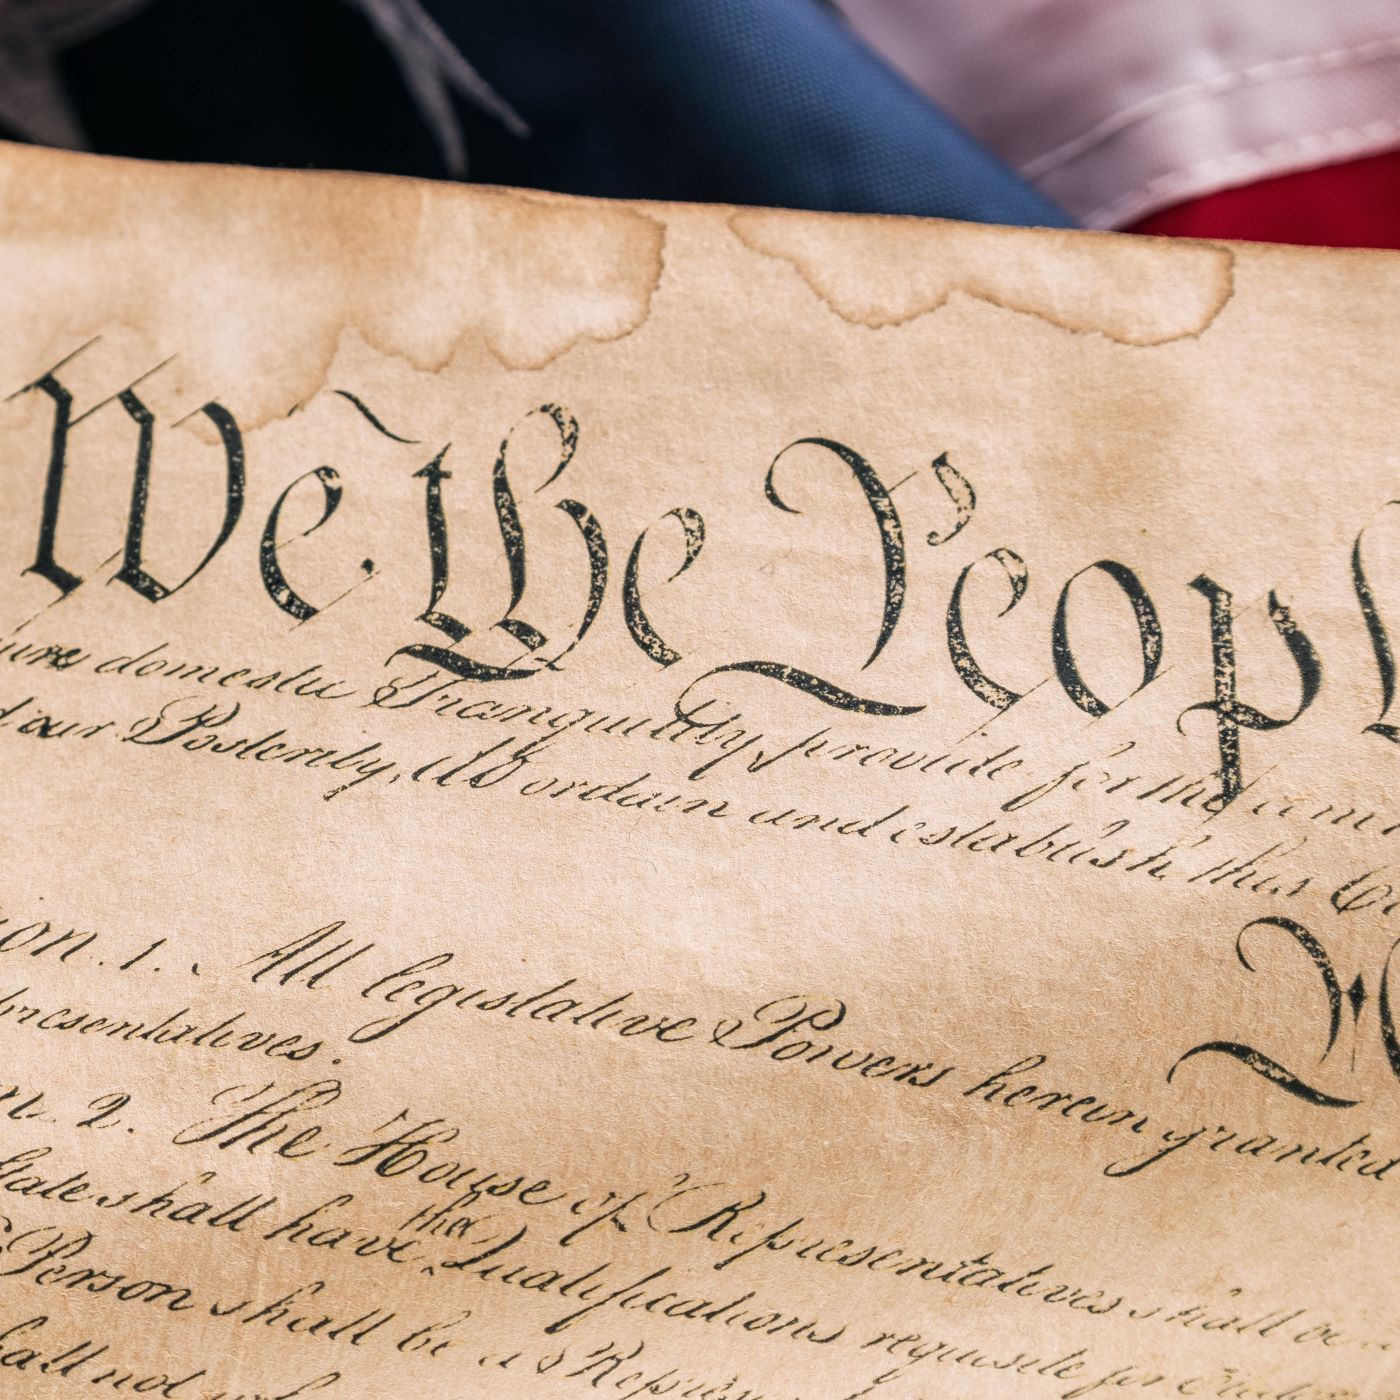 We the Peopl
ure domestic Tranquility, provide for the comm
d our Posterity, do ordain and establish this Co
ion. 1. All legislative Powers herein granted
presentatives.
n. 2. The House of Representatives shall be
State shall have the Qualifications requisite for
Person shall be a Repres
hall not